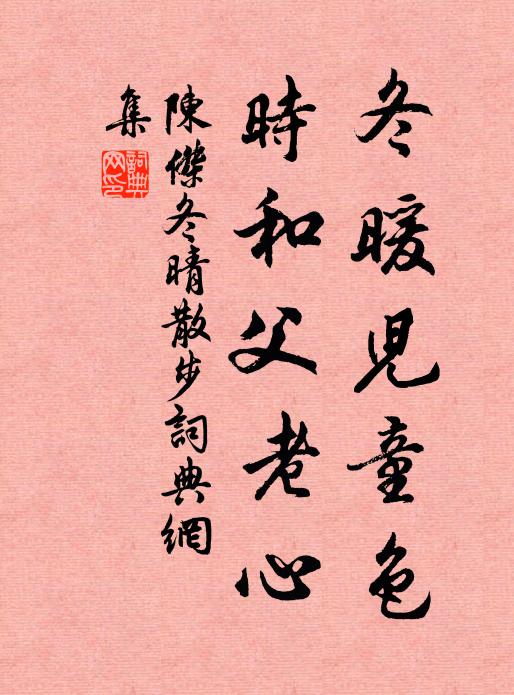 冬暖児童色
時和父老心
陳傑冬晴散步詞典網
集
詞典网印